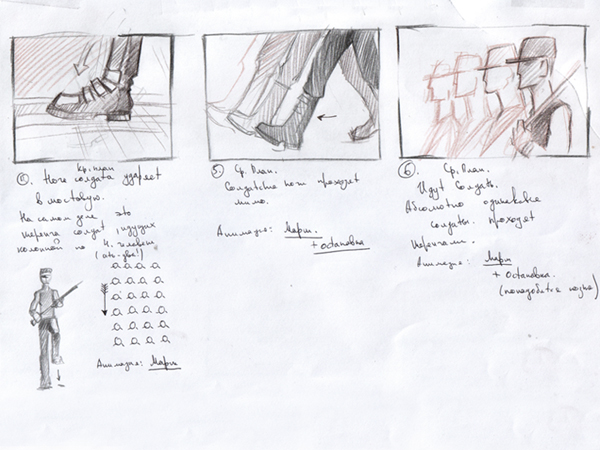 Кр. план
4. Нога солдата ударяет
в мостовую.
На самом деле это
шеренга солдат идущих
колонной по 4 человека
(ать-два!)
Анимация: Марш
5. Ср. План.
Солдатские ноги проходят
мимо.
Анимация: Марш.
+ остановка
6. Ср. План.
Идут Солдаты.
Абсолютно одинаковые
солдаты. проходят
шеренгами.
Анимация: Марш
+ Остановка.
(понадобится позже)